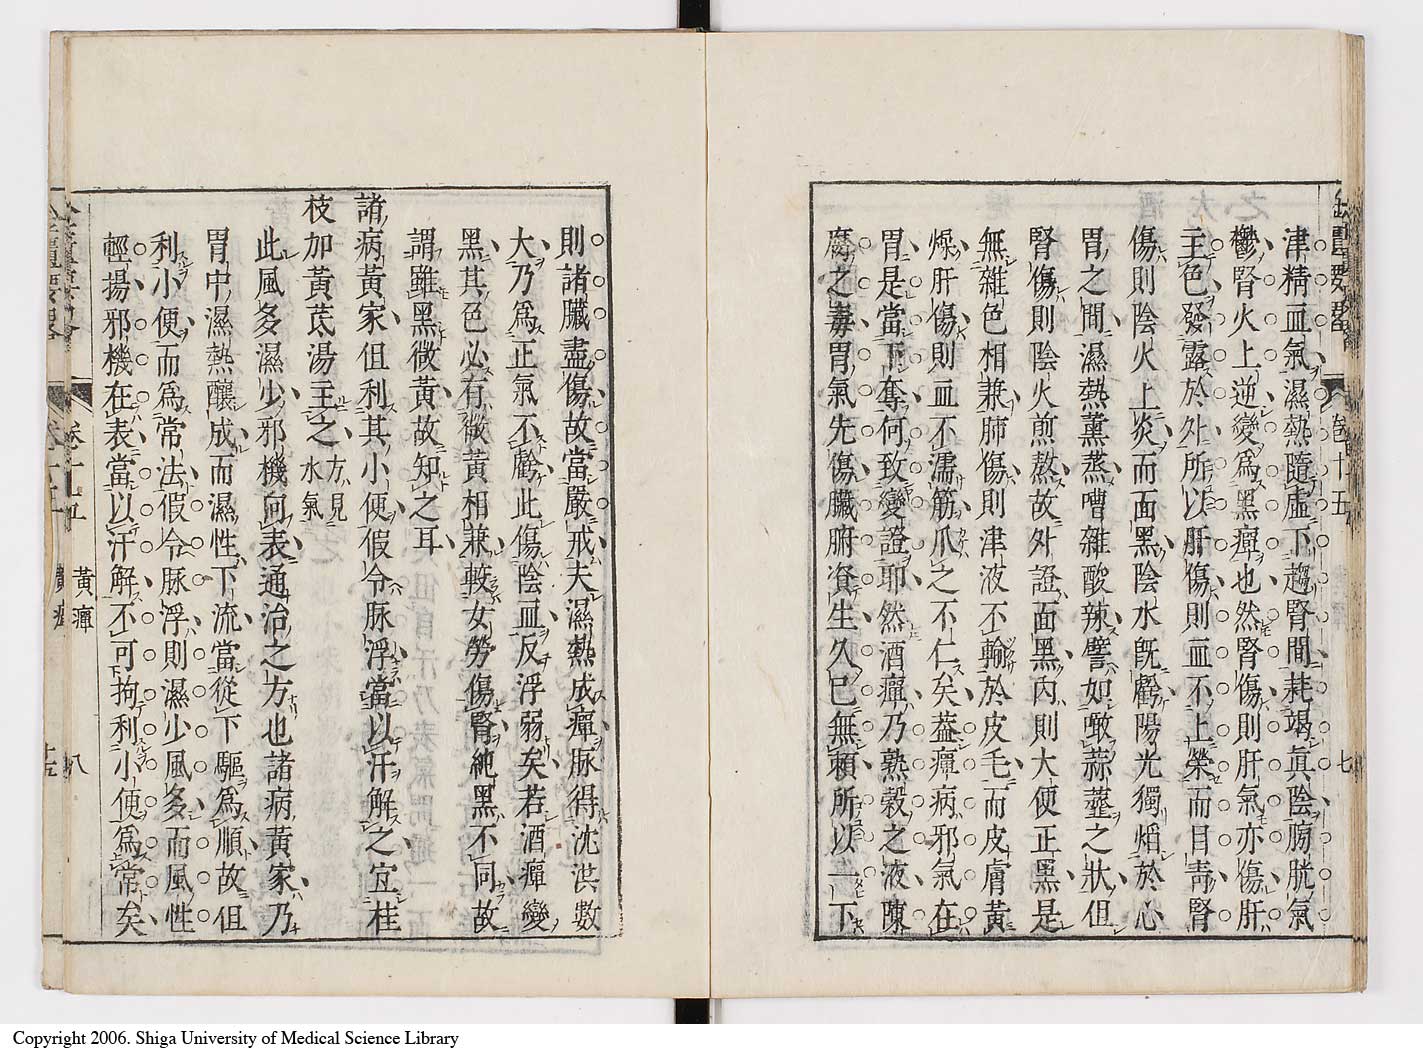 津精血氣濕熱隨虛下趨腎間耗竭眞陰膀胱氣
鬱腎火上逆變爲黑癉也然腎傷則肝氣亦傷肝
主色發露於外所以肝傷則血不上榮而目靑腎
傷則陰火上炎而面黑陰水旣虧陽光獨熖於心
胃之間濕熱薰蒸嘈雜酸辣譬如噉蒜虀之狀但
腎傷則陰火煎熬故外證面黑內則大便正黑是
無雜色相兼肺傷則津液不輸於皮毛而皮膚黃
燥肝傷則血不濡筋爪之不仁矣蓋癉病邪氣在
胃是當下奪何致變證耶然酒癉乃熱穀之液陳
腐之毒胃氣先傷臟腑資生久已無賴所以一下
卷十五
七
則諸臟盡傷故當嚴戒夫濕熱成癉脉得沈洪數
大乃爲正氣不虧此傷陰血反浮弱矣若酒癉變
黑其色必有微黃相兼較女勞傷腎純黑不同故
謂雖黑微黃故知之耳
諸病黃家但利其小便假令脉浮當以汗解之宜桂
枝加黃芪湯主之方見水氣
此風多濕少邪機向表通治之方也諸病黃家乃
胃中濕熱釀成而濕性下流當從下驅爲順故但
利小便而爲常法假令脉浮則濕少風多而風性
輕揚邪機在表當以汗解不可拘利小便爲常矣
黃癉
八
Copyright 2006. Shiga University of Medical Science Library